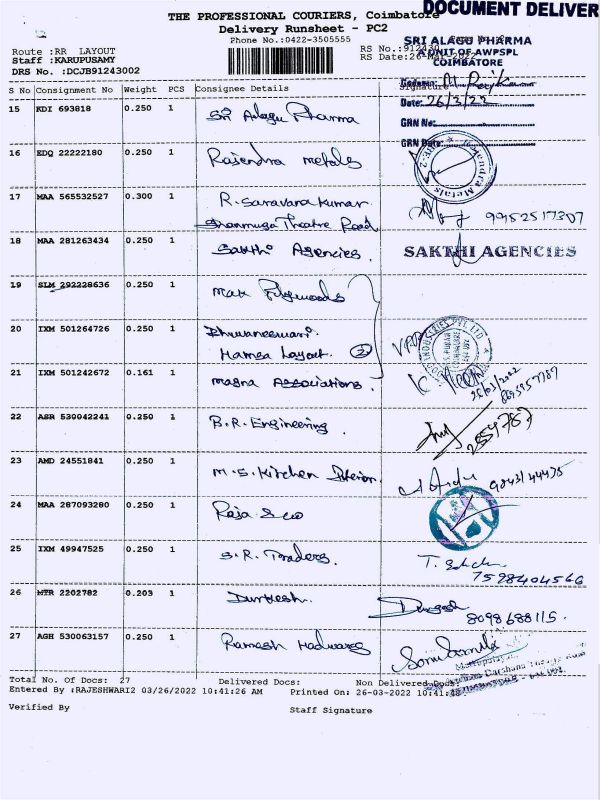 DOCUMENT DELIVER
THE PROFESSIONAL COURIERS, Coimbatore
Delivery Runsheet - PC2
Phone No.:0422-3505555
Route :RR LAYOUT
Staff :KARUPUSAMY
DRS No. :DCJB91243002
RS No.:912430
RS Date:26-Mar-2022
SRI ALAGU PHARMA
A UNIT OF AWPSPL
COIMBATORE
Date: 26/3/22
GRN No:
GRN Date:
S No Consignment No Weight PCS Consignee Details Signature
15 KDI 693818 0.250 1 Sri Alagu Pharma
16 EDQ 22222180 0.250 1 Rajendra metals
17 MAA 565532527 0.300 1 R. Saravana Kumar
Shanmuga Theatre Road
99152517307
18 MAA 281263434 0.250 1 Sakthi Agencies.
SAKTHI AGENCIES
19 SLM 292228636 0.250 1
20 IXM 501264726 0.250 1 Bhuvaneswari
Hamsa Layout. 2
21 IXM 501242672 0.161 1 magna Associations.
26/03/2022
22 ASR 530042241 0.250 1 B.R. Engineering
23 AMD 24551841 0.250 1 M.S. Kitchen Interior
24 MAA 287093280 0.250 1 Raja & co
25 IXM 49947525 0.250 1 S.R. Traders.
7598404566
26 MTR 2202782 0.203 1 Durgesh.
Durgesh
8098688115.
27 AGH 530063157 0.250 1 Ramesh Hadwares
Total No. Of Docs: 27 Delivered Docs: Non Delivered Docs:
Entered By :RAJESHWARI2 03/26/2022 10:41:26 AM Printed On: 26-03-2022 10:41:48
Verified By Staff Signature